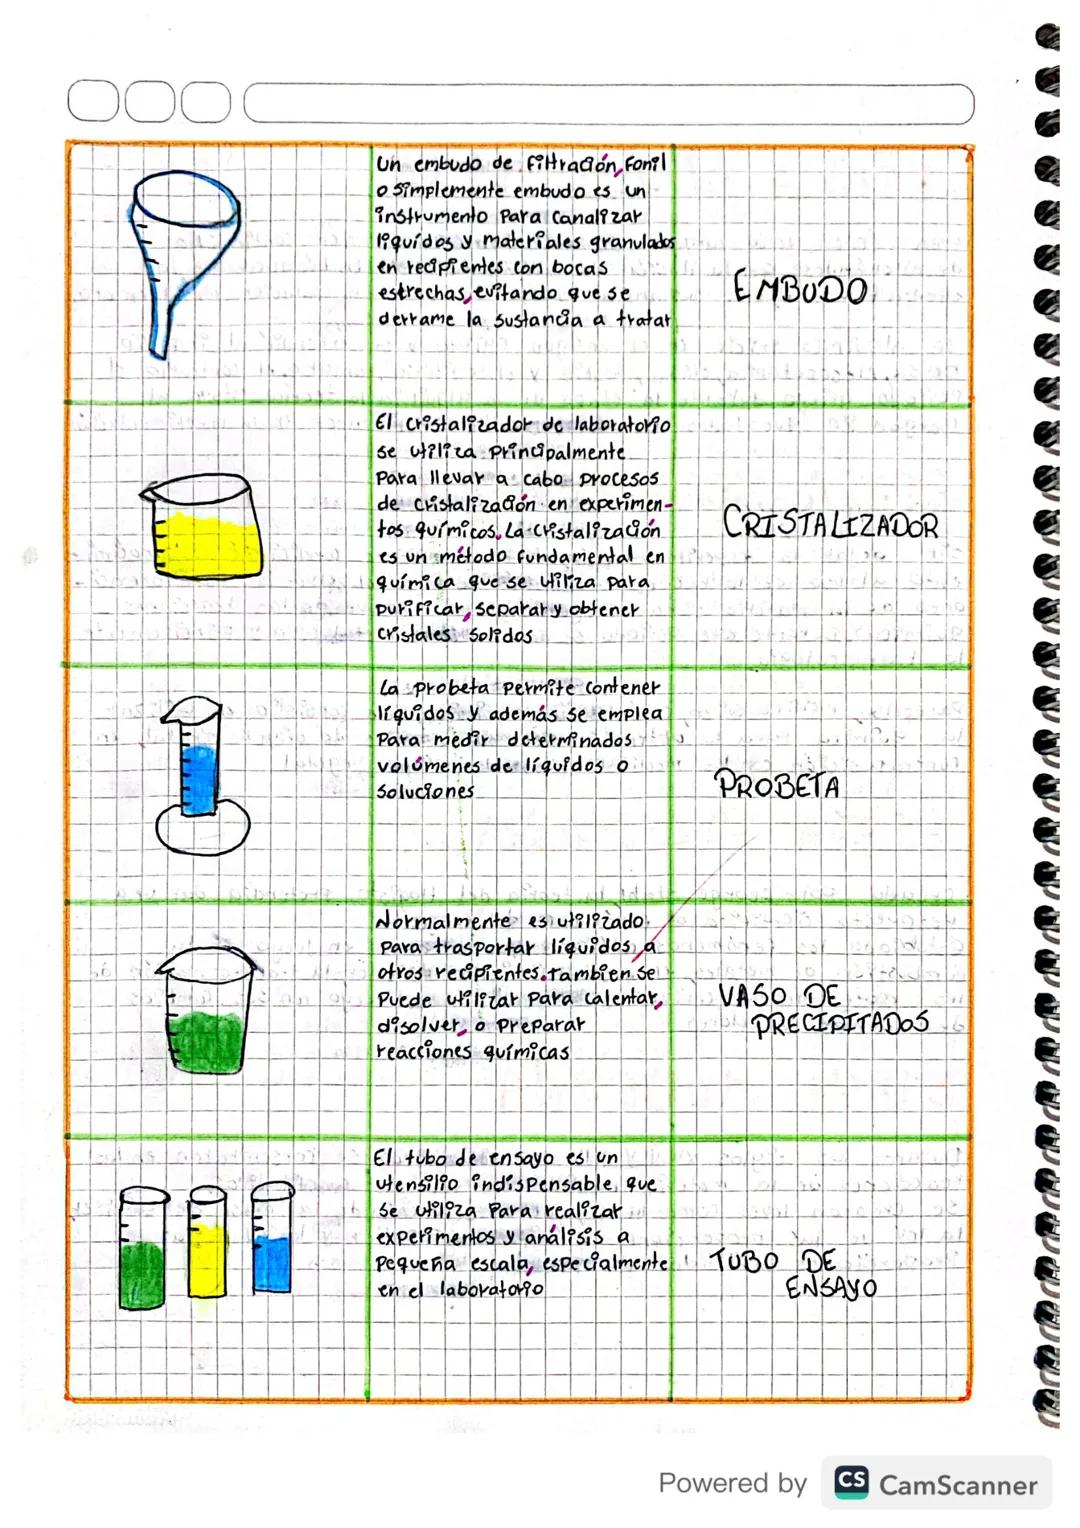 Un embudo de filtración, Fonil
o simplemente embudo es un
instrumento para canalizar
líquidos y materiales granulados
en recipientes con bocas
estrechas, evitando que se
derrame la sustancia a tratar
EMBUDO
El cristalizador de laboratorio
se utiliza principalmente
para llevar a cabo procesos
de cristalización en experimen-
tos químicos. La cristalización
es un método fundamental en
química que se utiliza para
purificar, separar y obtener
cristales solidos
CRISTALIZADOR
La probeta permite contener
líquidos y además se emplea
para medir determinados
volúmenes de líquidos o
soluciones
PROBETA
Normalmente es utilizado
para trasportar líquidos a
otros recipientes. Tambien se
puede utilizar para calentar,
disolver, o preparar
reacciones químicas
VASO DE
PRECIPITADOS
El tubo de ensayo es un
utensilio indispensable que
se utiliza para realizar
experimentos y análisis a
pequeña escala, especialmente
en el laboratorio
TUBO DE
ENSAYO
Powered by CS CamScanner